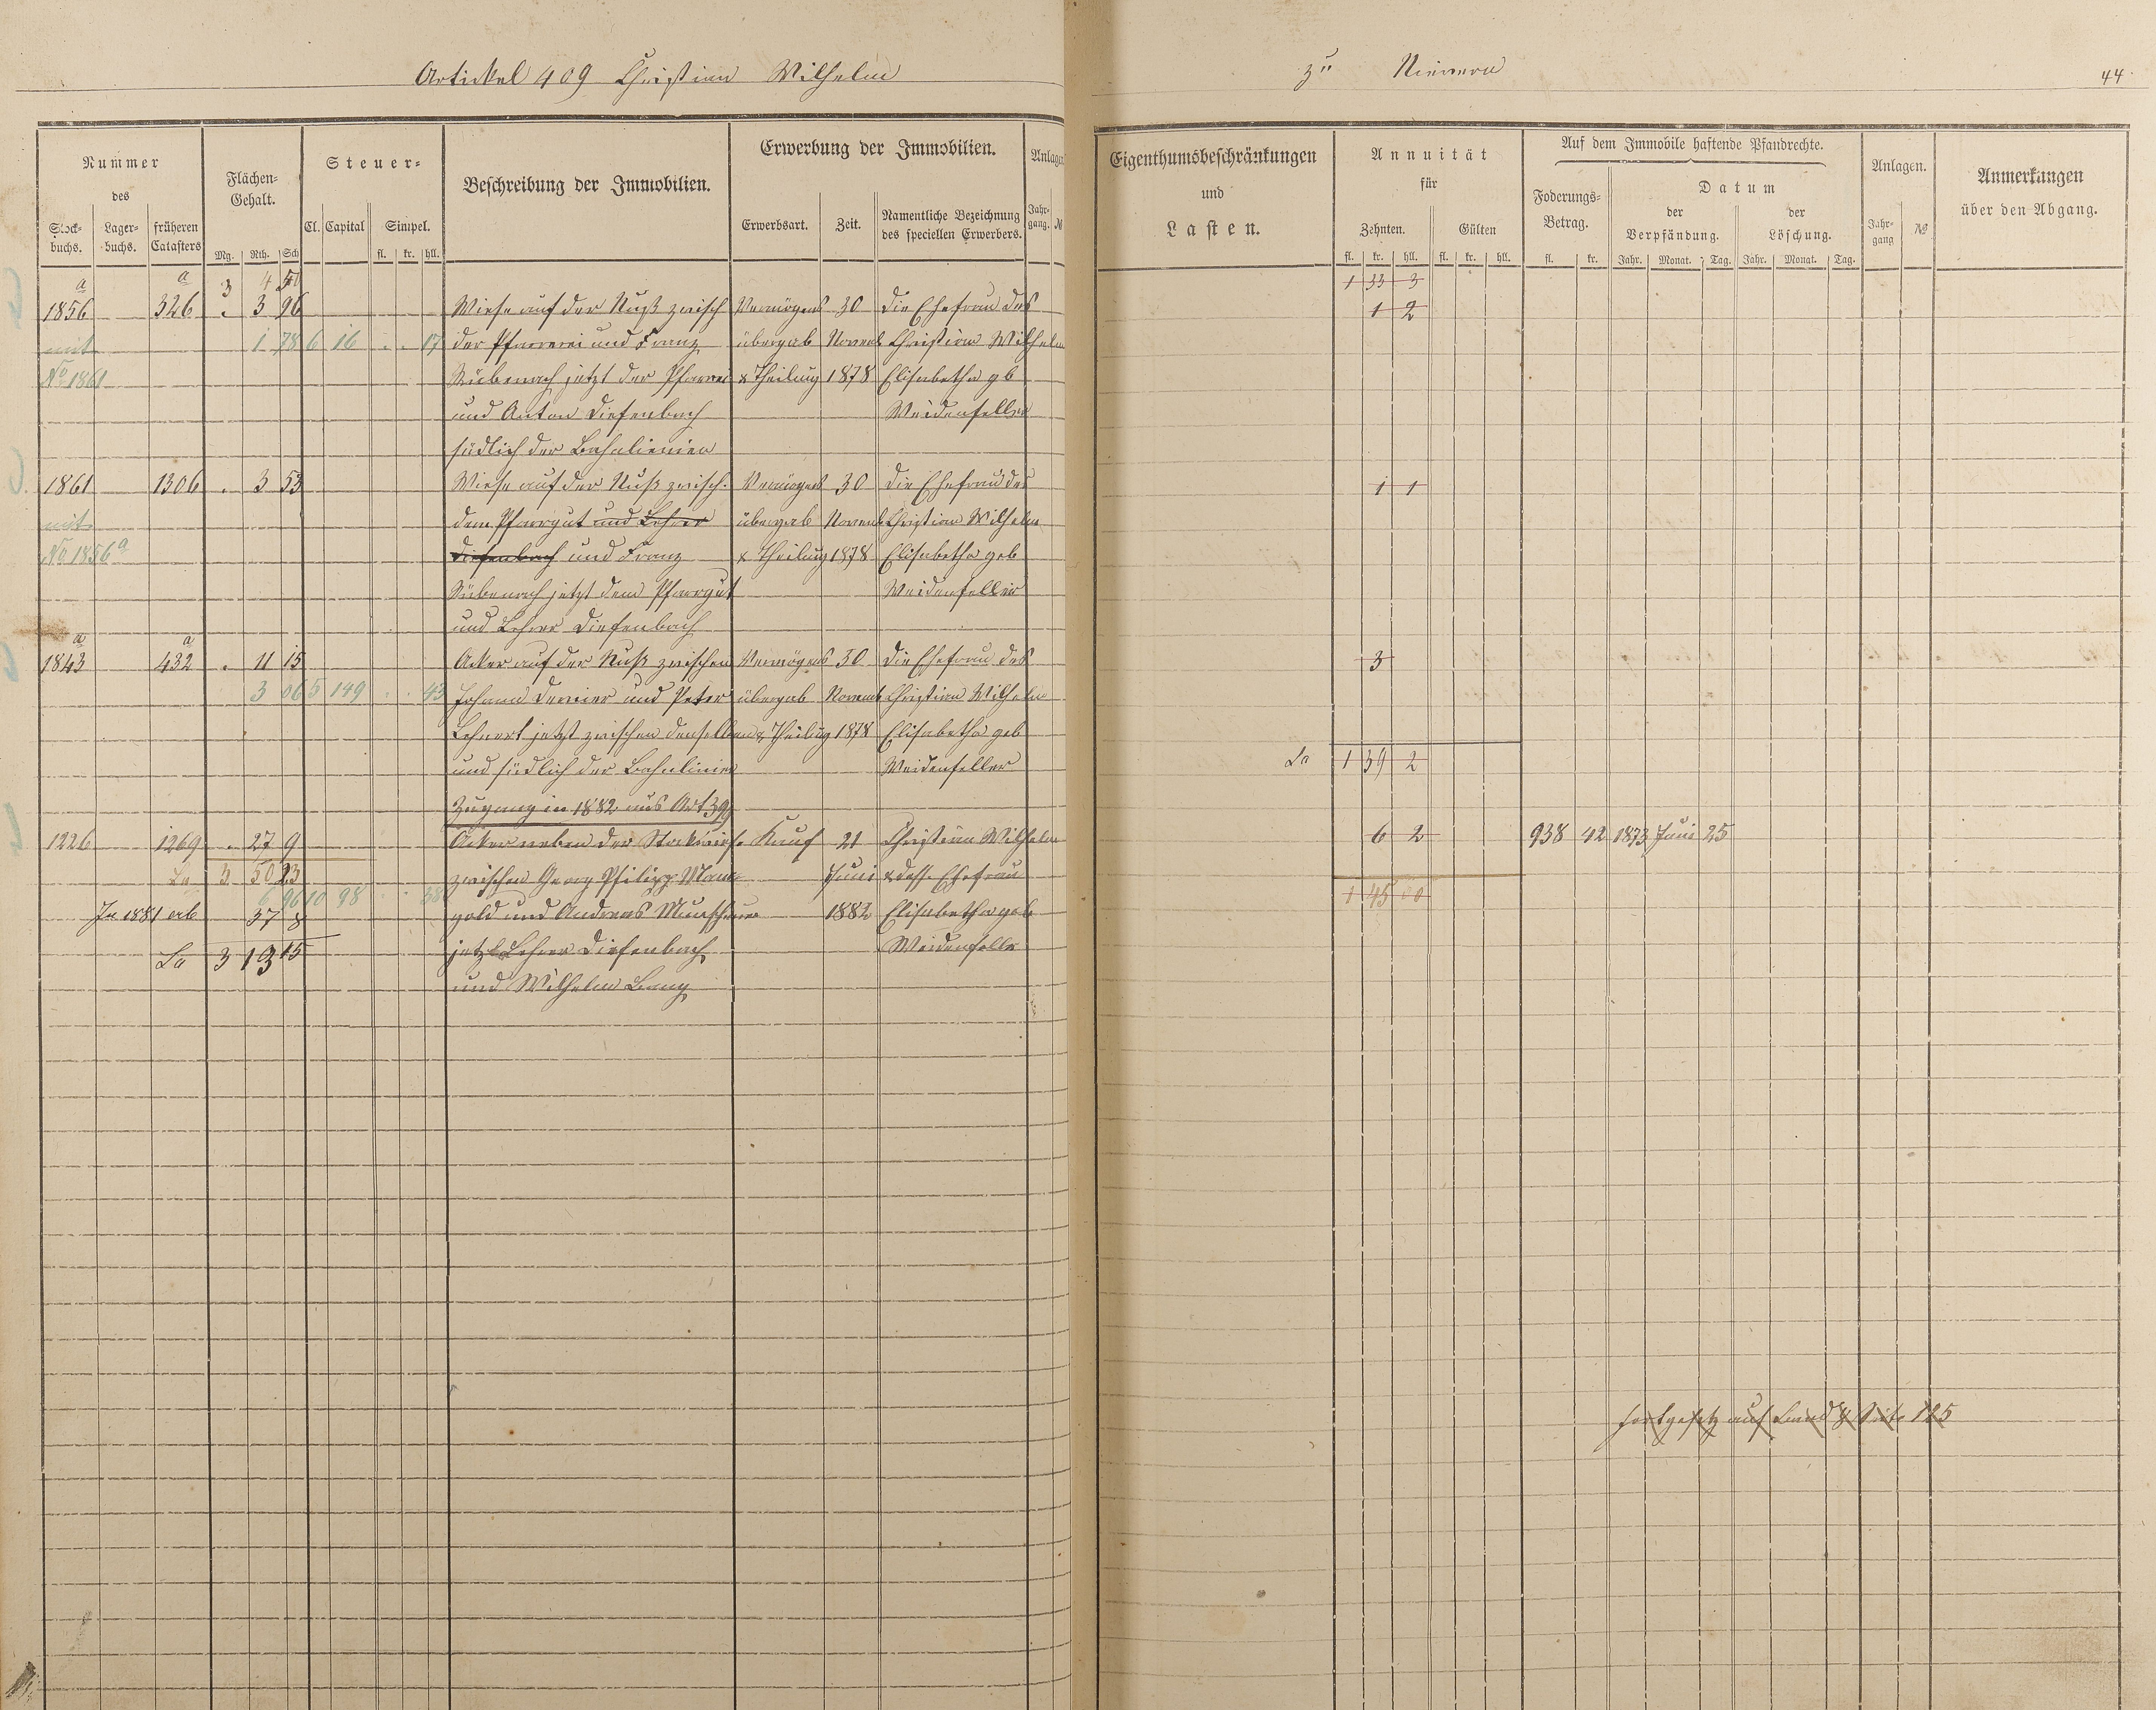 Artickel 409 Christian Wilhelm
zu Nievern
44
Nummer des
Stock-buchs. Lager-buchs. früheren Catasters
Flächen-Gehalt.
Mg. Rth. Sch
Steuer-
Cl. Capital Simpel.
fl. kr. hll.
Beschreibung der Immobilien.
Erwerbung der Immobilien.
Erwerbsart. Zeit. Namentliche Bezeichnung des speciellen Erwerbers.
Anlagen
Jahr-gang. №
Eigenthumsbeschränkungen
und
Lasten.
Annuität
für
Zehnten. Gülten
fl. kr. hll. fl. kr. hll.
Auf dem Immobile haftende Pfandrechte.
Foderungs-Betrag.
fl. kr.
Datum
der Verpfändung. der Löschung.
Jahr. Monat. Tag. Jahr. Monat. Tag.
Anlagen.
Jahr-gang №
Anmerkungen
über den Abgang.
a a 3 4 50 1 33 3
1856 326 . 3 96 Wiese auf der Nuß zwisch Vermögens 30 die Ehefrau des 1 2
mit 1 78 6 16 . . 17 der Pfarrerei und Franz übergab Novemb Christian Wilhelm
No 1861 Rübenach jetzt der Pfarrei & Theilung 1878 Elisabetha gb
und Anton Diefenbach Weidenfeller
südlich der Bahnlinien
1861 1306 . 3 53 Wiese auf der Nuß zwisch. Vermögens 30 die Ehefrau des 1 1
mit dem Pfarrgut und Lehrer übergab Novemb Christian Wilhelm
No 1856a Diefenbach und Franz & Theilung 1878 Elisabetha geb
Rübenach jetzt dem Pfarrgut Weidenfeller
und Lehrer Diefenbach
a a
1843 432 . 11 15 Acker auf der Nuß zwischen Vermögens 30 die Ehefrau des 3
3 06 5 149 . . 43 Johann und Peter übergab Novemb Christian Wilhelm
Lehnert jetzt zwischen denselben & Theilug 1878 Elisabetha geb
und südlich der Bahnlinien Weidenfeller La 1 39 2
Zugang in 1882 aus Art 399
1226 1269 . 27 9 Acker neben der Stockwiese Kauf 21 Christian Wilhelm 6 2 938 42 1873 Juni 25
La 3 50 23 zwischen Georg Philipp Man Juni & dess. Ehefrau
6 96 10 98 . 38 1 45 00
In 1881 erb 37 8 gold und Andreas 1882 Elisabetha geb
La 3 13 15 jetzt Lehrer Diefenbach Weidenfeller
und Wilhelm Bang
fortgesetz auf Band Seite 125